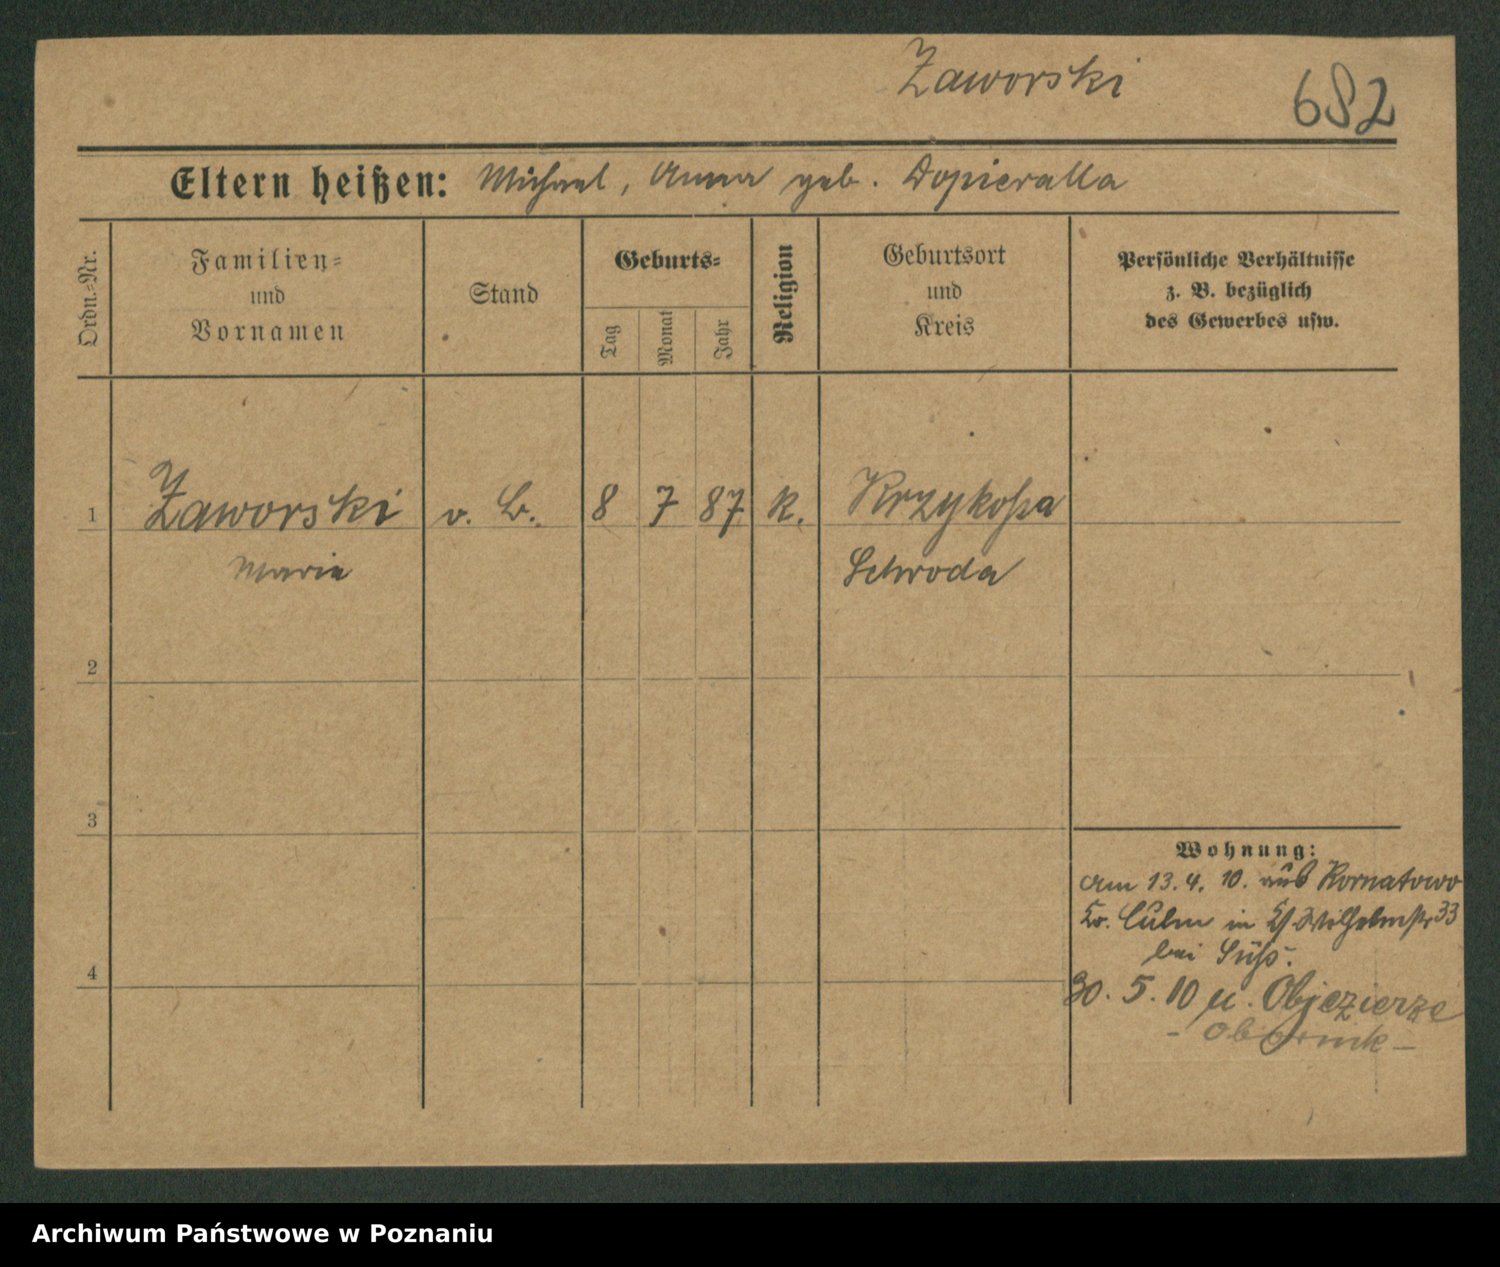 Zaworski
682
Eltern heißen: Michael, Anna geb. Dopieralla
Ordn.-Nr.
Familien-
und
Vornamen
Stand
Geburts-
Tag
Monat
Jahr
Religion
Geburtsort
und
Kreis
Persönliche Verhältnisse
z. B. bezüglich
des Gewerbes usw.
1 Zaworski v. B. 8 7 87 K. Krzykoßa
Marie Schroda
2
3
Wohnung:
am 13. 4. 10. aus Kornatowo
Kr. Culm in Wilhelmstr 33
bei Süß.
4
30. 5. 10 n. Objezierze
- Obornik -
Archiwum Państwowe w Poznaniu